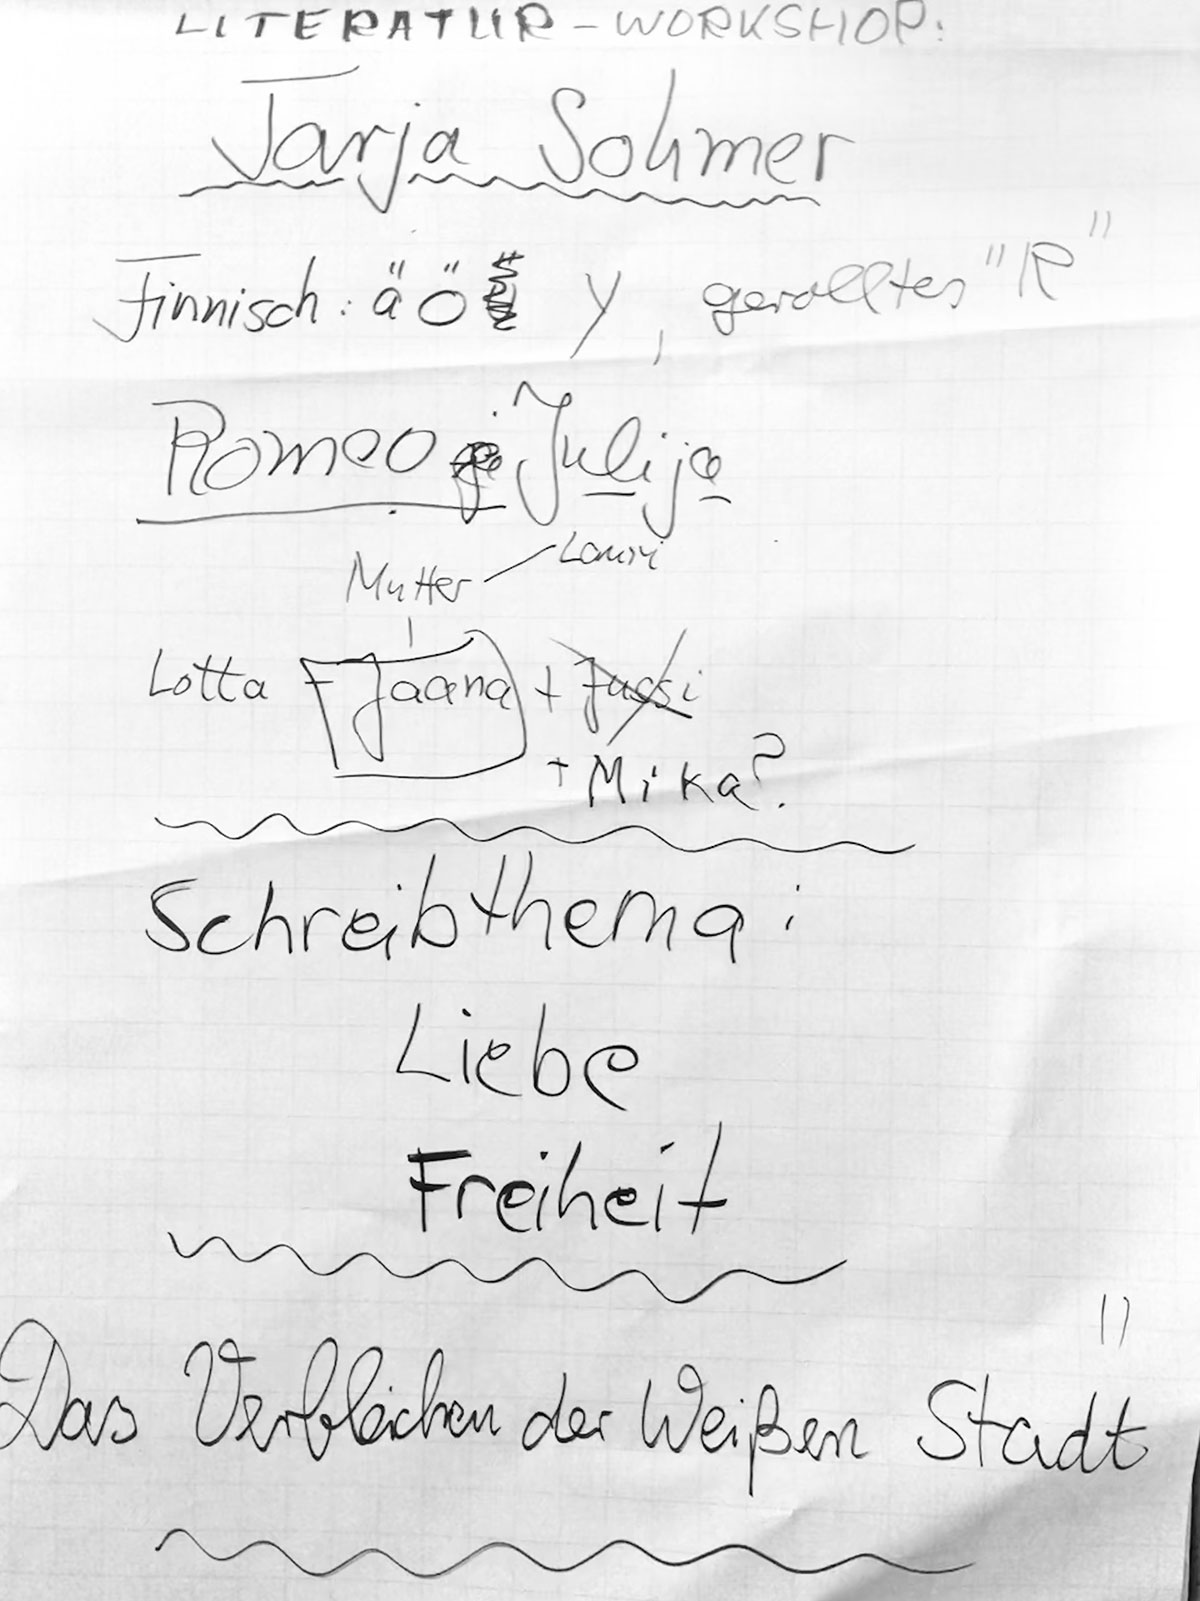 LITERATUR-WORKSHOP:
Tarja Sohmer
Finnisch: ä ö y, gerolltes "R"
Romeo Julija
Mutter Lauri
Lotta Jaana + Jussi
+ Mika?
Schreibthema:
Liebe
Freiheit
Das Verbleichen der Weißen Stadt"